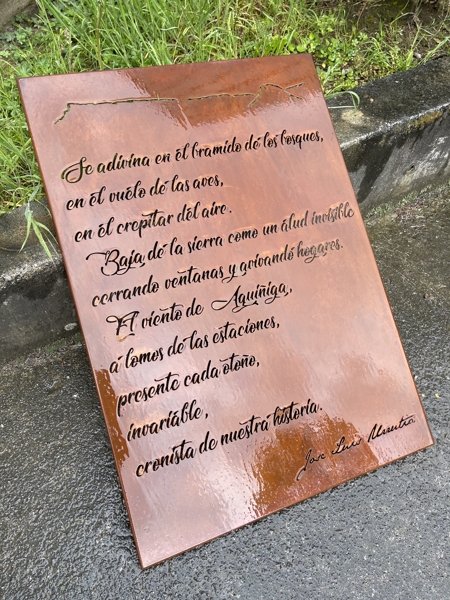 Se adivina en el bramido de los bosques,
en el vuelo de las aves,
en el crepitar del aire.
Baja de la sierra como un alud invisible
cerrando ventanas y avivando hogares.
El viento de Aquiñiga,
a lomos de las estaciones,
presente cada otoño,
invariable,
cronista de nuestra historia.
Jose Luis Urrutia